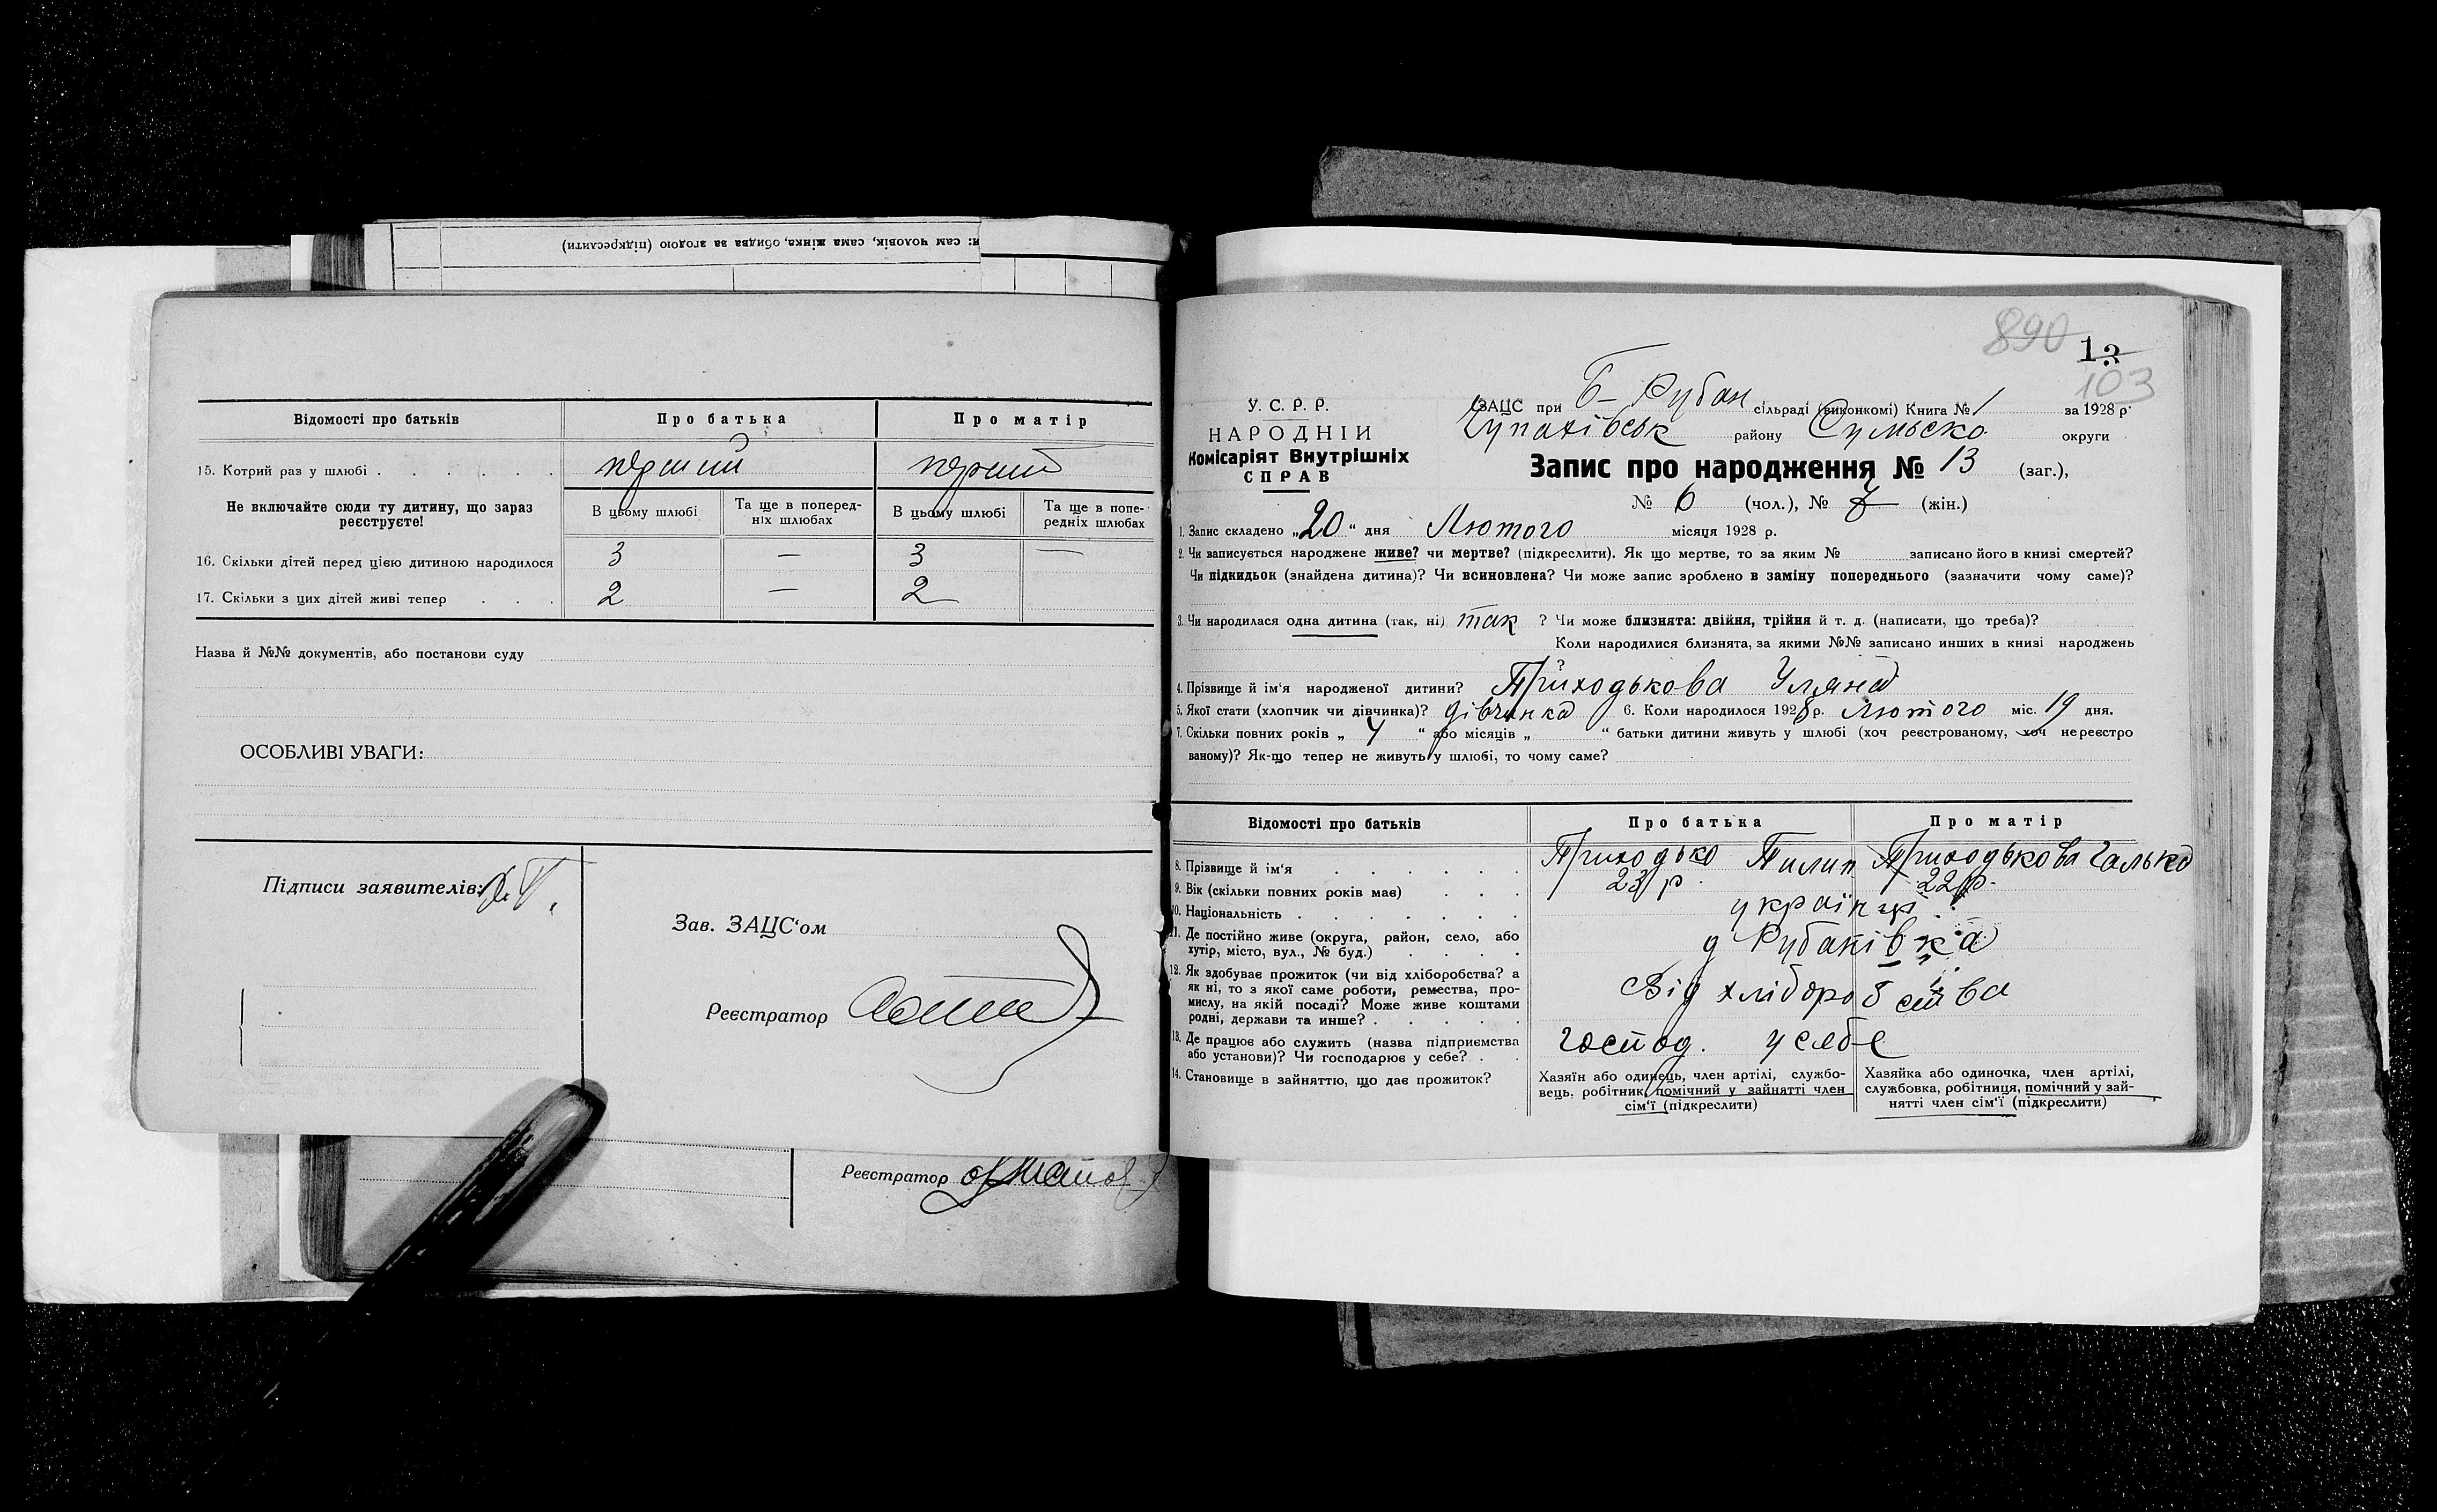 сам чоловік, сама жінка, обидва за згодою (підкреслити)
Відомості про батьків
Про батька
Про матір
15. Котрий раз у шлюбі
перший
перший
Не включайте сюди ту дитину, що зараз
реєструєте!
В цьому шлюбі
Та ще в поперед-
ніх шлюбах
В цьому шлюбі
Та ще в попе-
редніх шлюбах
16. Скільки дітей перед цією дитиною народилося
3 — 3 —
17. Скільки з цих дітей живі тепер . . .
2 — 2
Назва й №№ документів, або постанови суду
ОСОБЛИВІ УВАГИ:
Підписи заявителів:
Зав. ЗАЦС'ом
Реєстратор
Реєстратор
890
13
103
У. С. Р. Р.
НАРОДНІЙ
Комісаріят Внутрішніх
СПРАВ
ЗАЦС при Б-Рубан сільраді (виконкомі) Книга № 1 за 1928 р.
Чупахівськ району Сумьско округи
Запис про народження № 13 (заг.),
№ 6 (чол.), № 7 (жін.)
1. Запис складено „20" дня Лютого місяця 1928 р.
2. Чи записується народжене живе? чи мертве? (підкреслити). Як що мертве, то за яким № записано його в книзі смертей?
Чи підкидьок (знайдена дитина)? Чи всиновлена? Чи може запис зроблено в заміну попереднього (зазначити чому саме)?
3. Чи народилася одна дитина (так, ні) так ? Чи може близнята: двійня, трійня й т. д. (написати, що треба)?
Коли народилися близнята, за якими №№ записано инших в книзі народжень
?
4. Прізвище й ім'я народженої дитини? Приходькова Уляна
5. Якої стати (хлопчик чи дівчинка)? дівчинка 6. Коли народилося 1928 р. Лютого міс. 19 дня.
7. Скільки повних років „ 4 " або місяців „ " батьки дитини живуть у шлюбі (хоч реєстрованому, хоч нереєстро
ваному)? Як-що тепер не живуть у шлюбі, то чому саме?
Відомості про батьків
Про батька
Про матір
8. Прізвище й ім'я
Приходько Пилип
Приходькова Галька
9. Вік (скільки повних років має)
23 р.
22 р.
10. Національність
українці
11. Де постійно живе (округа, район, село, або
хутір, місто, вул., № буд.)
д Рубанівка
12. Як здобуває прожиток (чи від хліборобства? а
як ні, то з якої саме роботи, ремества, про-
мислу, на якій посаді? Може живе коштами
родні, держави та инше?
Від хліборобства
13. Де працює або служить (назва підприємства
або установи)? Чи господарює у себе?
господ. у себе
14. Становище в зайняттю, що дає прожиток?
Хазяїн або одинець, член артілі, службо-
вець, робітник, помічний у зайнятті член
сім'ї (підкреслити)
Хазяйка або одиночка, член артілі,
службовка, робітниця, помічний у зай-
нятті член сім'ї (підкреслити)